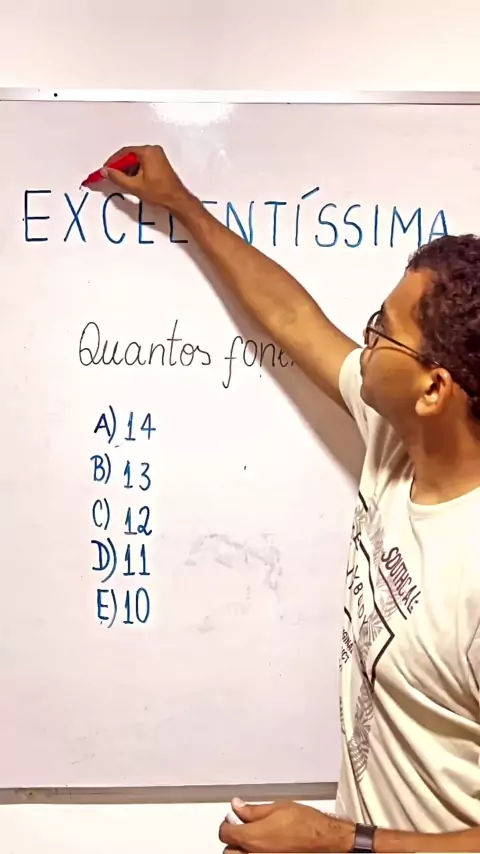 EXCELENTÍSSIMA
Quantos
A) 14
B) 13
C) 12
D) 11
E) 10
SOUTHCALE